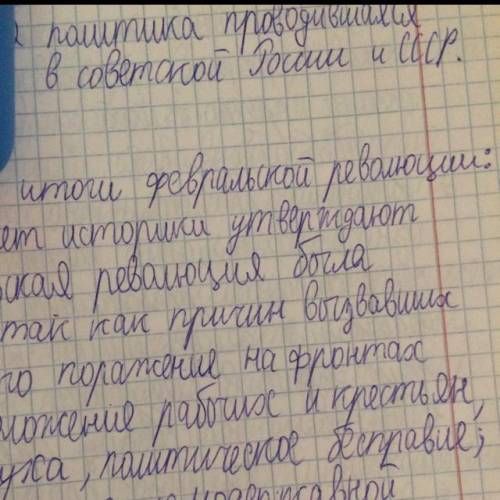 политика проводившаяся
в советской России и СССР.
итоги февральской революции:
ет историки утверждают
ская революция была
так как причин вызвавших
го поражение на фронтах
ложение рабочих и крестьян,
уха, политическое бесправие;